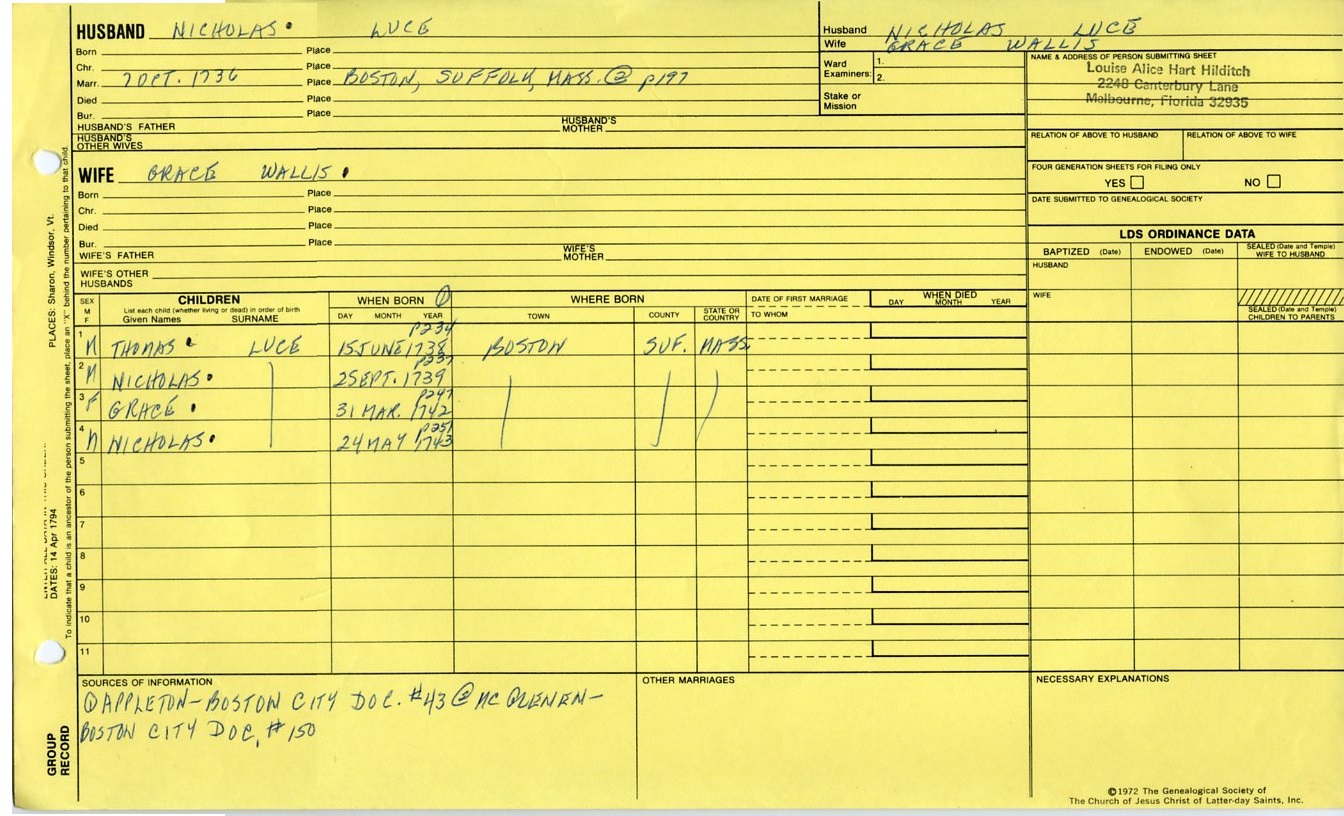 HUSBAND NICHOLAS LUCE
Born Place
Chr. Place
Marr. 7 OCT. 1736 Place BOSTON, SUFFOLK, MASS. ② p197
Died Place
Bur. Place
HUSBAND'S FATHER HUSBAND'S MOTHER
HUSBAND'S OTHER WIVES
Husband NICHOLAS LUCE
Wife GRACE WALLIS
Ward Examiners: 1.
2.
Stake or Mission
NAME & ADDRESS OF PERSON SUBMITTING SHEET
Louise Alice Hart Hilditch
2248 Canterbury Lane
Melbourne, Florida 32935
RELATION OF ABOVE TO HUSBAND RELATION OF ABOVE TO WIFE
FOUR GENERATION SHEETS FOR FILING ONLY
YES NO
DATE SUBMITTED TO GENEALOGICAL SOCIETY
WIFE GRACE WALLIS
Born Place
Chr. Place
Died Place
Bur. Place
WIFE'S FATHER WIFE'S MOTHER
WIFE'S OTHER HUSBANDS
LDS ORDINANCE DATA
BAPTIZED (Date) ENDOWED (Date) SEALED (Date and Temple) WIFE TO HUSBAND
HUSBAND
WIFE
SEALED (Date and Temple) CHILDREN TO PARENTS
SEX M F
CHILDREN
List each child (whether living or dead) in order of birth
Given Names SURNAME
WHEN BORN ①
DAY MONTH YEAR
WHERE BORN
TOWN COUNTY STATE OR COUNTRY
DATE OF FIRST MARRIAGE
TO WHOM
WHEN DIED
DAY MONTH YEAR
p234
1 M THOMAS LUCE 15 JUNE 1738 BOSTON SUF. MASS
p237
2 M NICHOLAS 2 SEPT. 1739
p247
3 F GRACE 31 MAR. 1742
p251
4 M NICHOLAS 24 MAY 1743
5
6
7
8
9
10
11
SOURCES OF INFORMATION
① APPLETON - BOSTON CITY DOC. #43 ② MC GLENEN -
BOSTON CITY DOC. #150
OTHER MARRIAGES
NECESSARY EXPLANATIONS
©1972 The Genealogical Society of
The Church of Jesus Christ of Latter-day Saints, Inc.
PLACES: Sharon, Windsor, Vt.
DATES: 14 Apr 1794
To indicate that a child is an ancestor of the person submitting the sheet, place an "X" behind the number pertaining to that child.
GROUP
RECORD